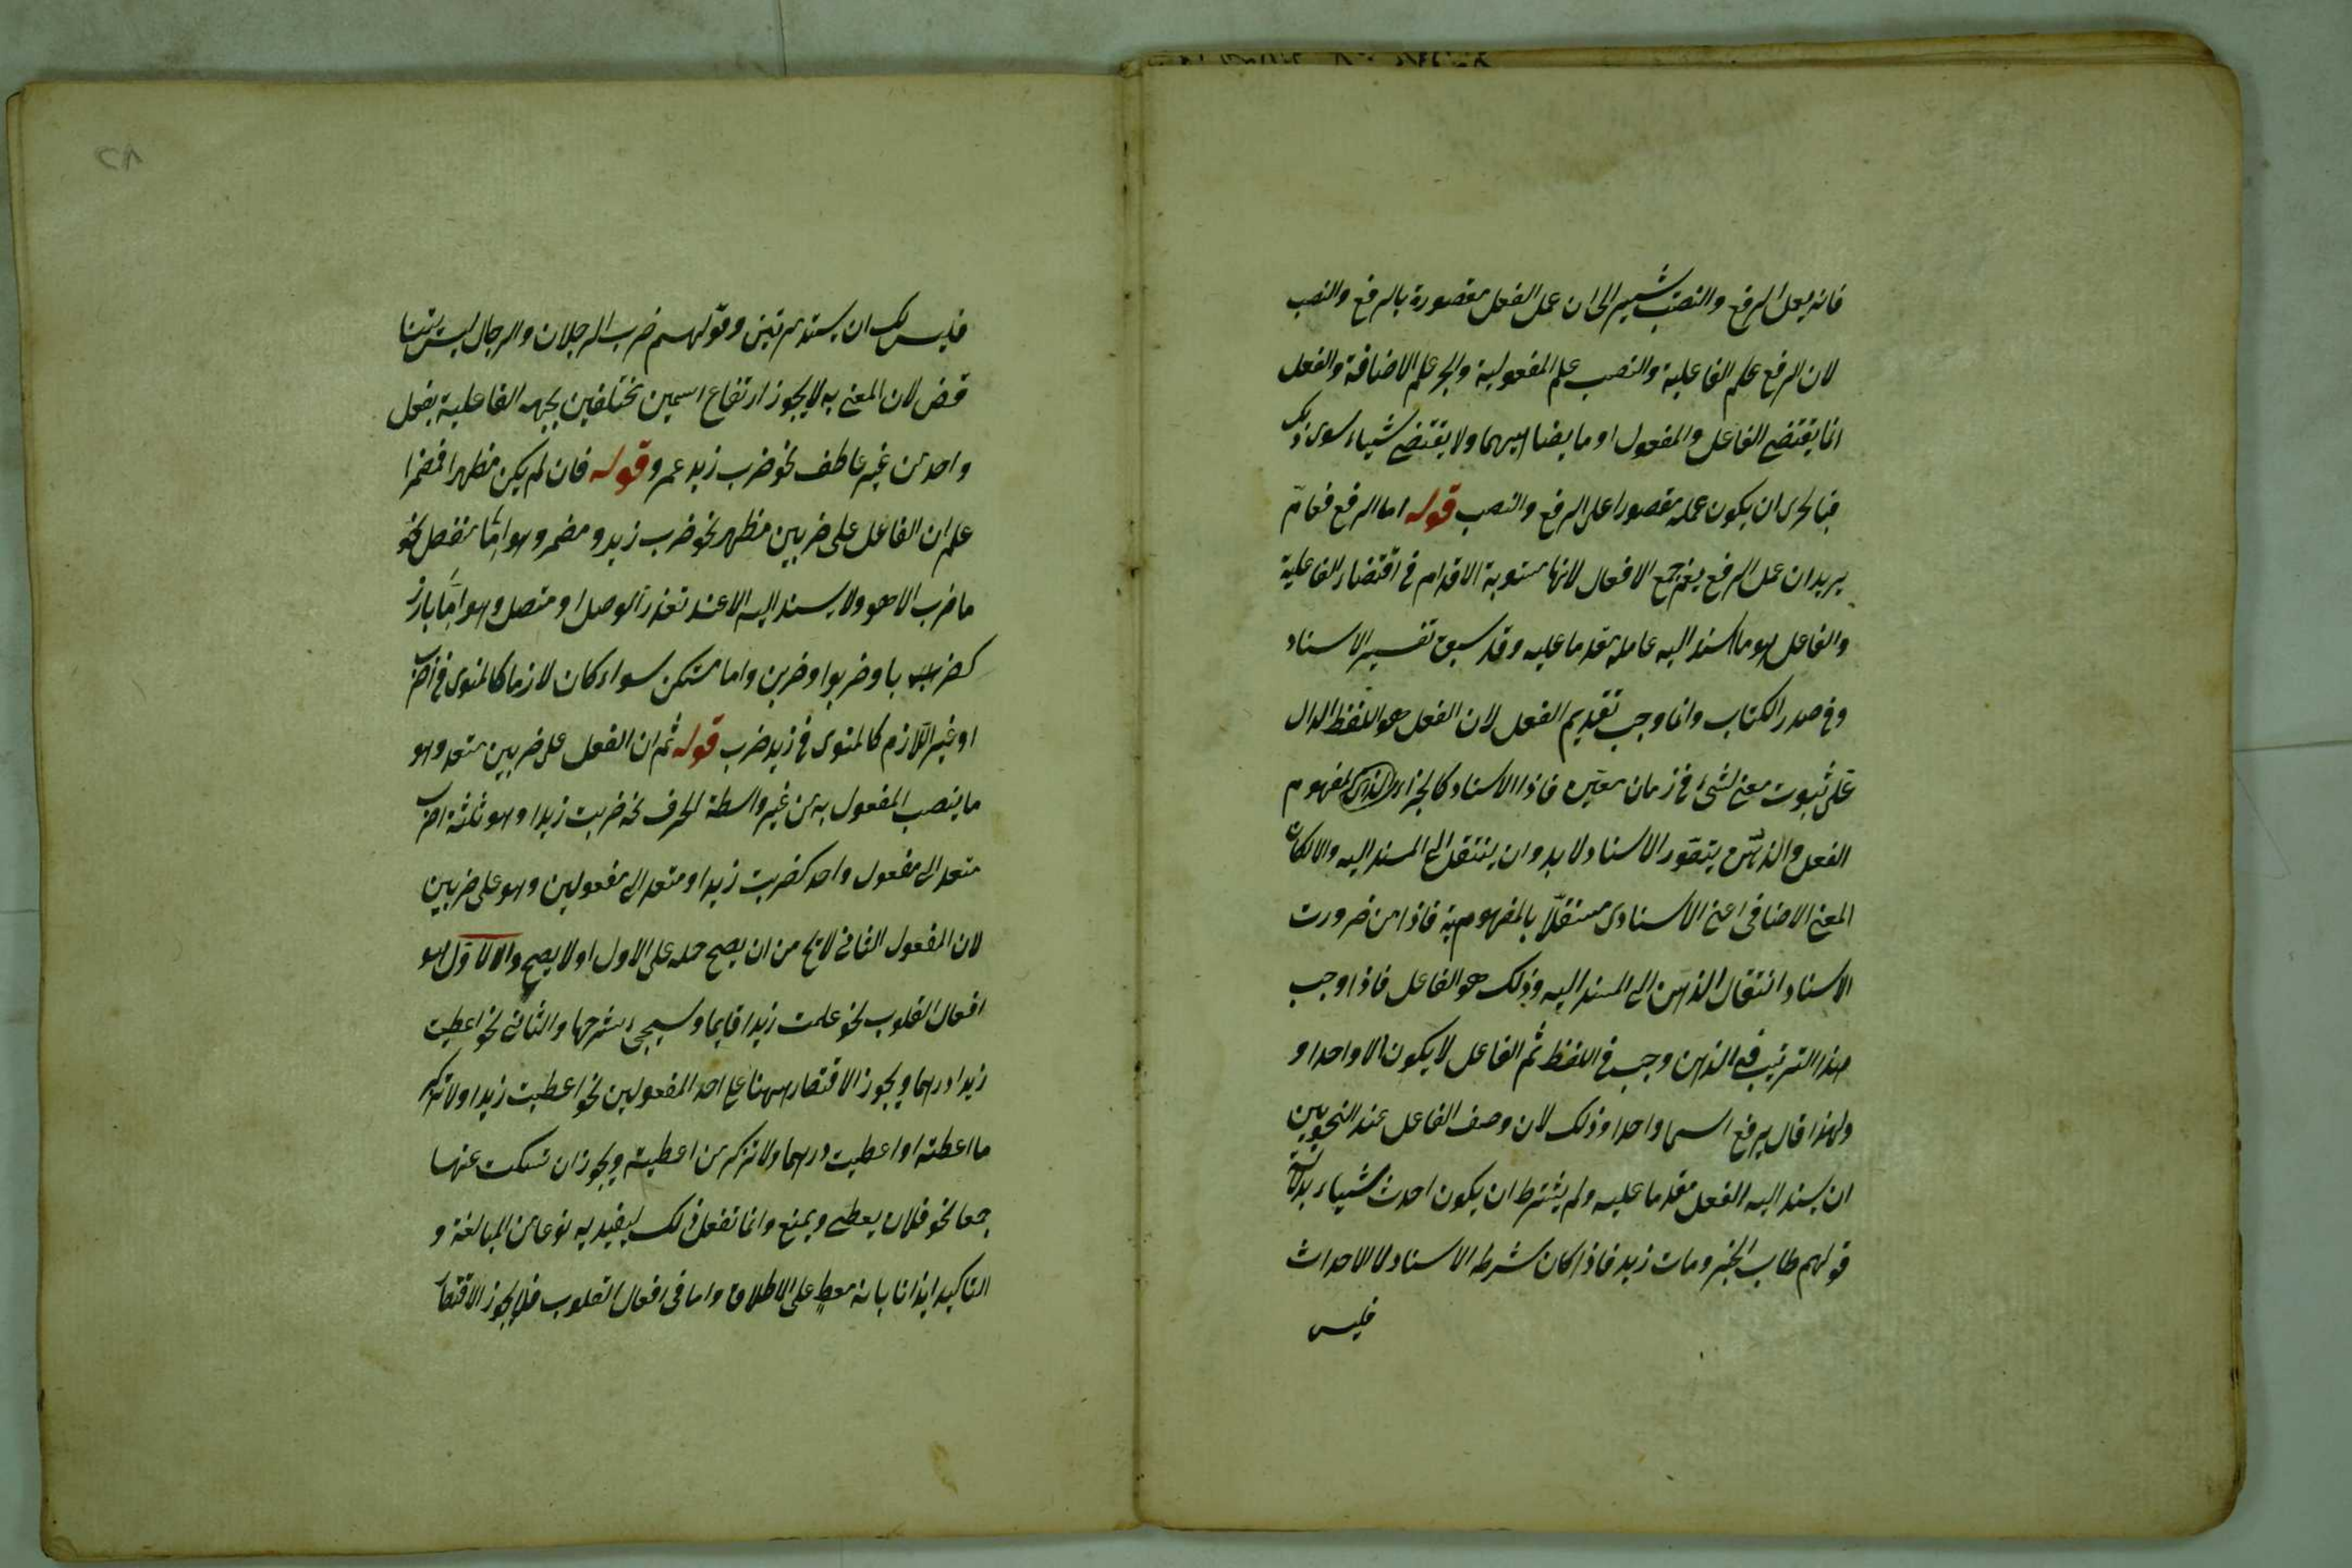 فانه يعمل الرفع والنصب يشير الى ان عمل الفعل مقصورة بالرفع والنصب
لان الرفع علم الفاعلية والنصب علم المفعولية والجر علم الاضافة والفعل
انما يقتضى الفاعل والمفعول او ما يضاهيهما ولا يقتضى شياء سوى ذلك
فبالحرى ان يكون عمله مقصورا على الرفع والنصب قوله اما الرفع فعامّ
يريد ان عمل الرفع يعم جمع الافعال لانها مستوية الاقدام فى اقتضاء الفاعلية
والفاعل هو ما اسند اليه عامله مقدما عليه وقد سبق تفسير الاسناد
وفى صدر الكتاب وانما وجب تقديم الفعل لان الفعل هو اللفظ الدال
على ثبوت معنى لشئ فى زمان معين فاذا الاسناد كالجزء الذاتى لمفهوم
الفعل والذهن يتصور الاسناد لا بد وان ينتقل الى المسند اليه والا لكان
المعنى الاضافى اعنى الاسنادى مستقلّا بالمفهومية فاذا من ضرورت
الاسناد انتقال الذهن الى المسند اليه وذلك هو الفاعل فاذا وجب
هذا الترتيب فى الذهن وجب فى اللفظ ثم الفاعل لا يكون الا واحدا و
ولهذا قال يرفع اسما واحدا وذلك لان وصف الفاعل عند النحويين
ان يسند اليه الفعل مقدما عليه ولم يشترط ان يكون احدث شياء بدلالة
قولهم طاب الخبر ومات زيد فاذا كان شرطه الاسناد لا الاحداث
فليس
فليس لك ان يسند مرتين وقولهم ضرب الرجلان والرجال ليس بتنا
قض لان المعنى به لا يجوز ارتفاع اسمين مختلفين بجهه الفاعلية بفعل
واحد من غير عاطف نحو ضرب زيد عمرو قوله فان لم يكن مظهرا فمضمرا
علم ان الفاعل على ضربين مظهر نحو ضرب زيد ومضمر وهو امّا منفصل نحو
ما ضرب الا هو ولا يسند اليه الا عند تعذر الوصل او متصل وهو امّا بارز
كضربا وضربوا وضربن واما مستكن سواء كان لازما كالمنوى فى اضرب
او غير اللازم كالمنوى فى زيد ضرب قوله ثم ان الفعل على ضربين متعد وهو
ما ينصب المفعول به من غير واسطة الحرف نحو ضربت زيدا وهو ثلثة اضرب
متعد الى مفعول واحد كضربت زيدا ومتعد الى مفعولين وهو على ضربين
لان المفعول الثانى لا يخ من ان يصح حمله على الاول او لا يصح والاول هو
افعال القلوب نحو علمت زيدا قايما وسيجئ شرحها والثانى نحو اعطيت
زيدا درهما ويجوز الاقتصار ههنا على احد المفعولين نحو اعطيت زيدا ولا تذكر
ما اعطته او اعطيت درهما ولا تذكر من اعطيته ويجوز ان تسكت عنهما
جمعا نحو فلان يعطى ويمنع وانما تفعل ذلك ليفيد به نوعا من المبالغة و
التاكيد ايذانا بانه معطٍ على الاطلاق واما فى افعال القلوب فلا يجوز الاقتصا